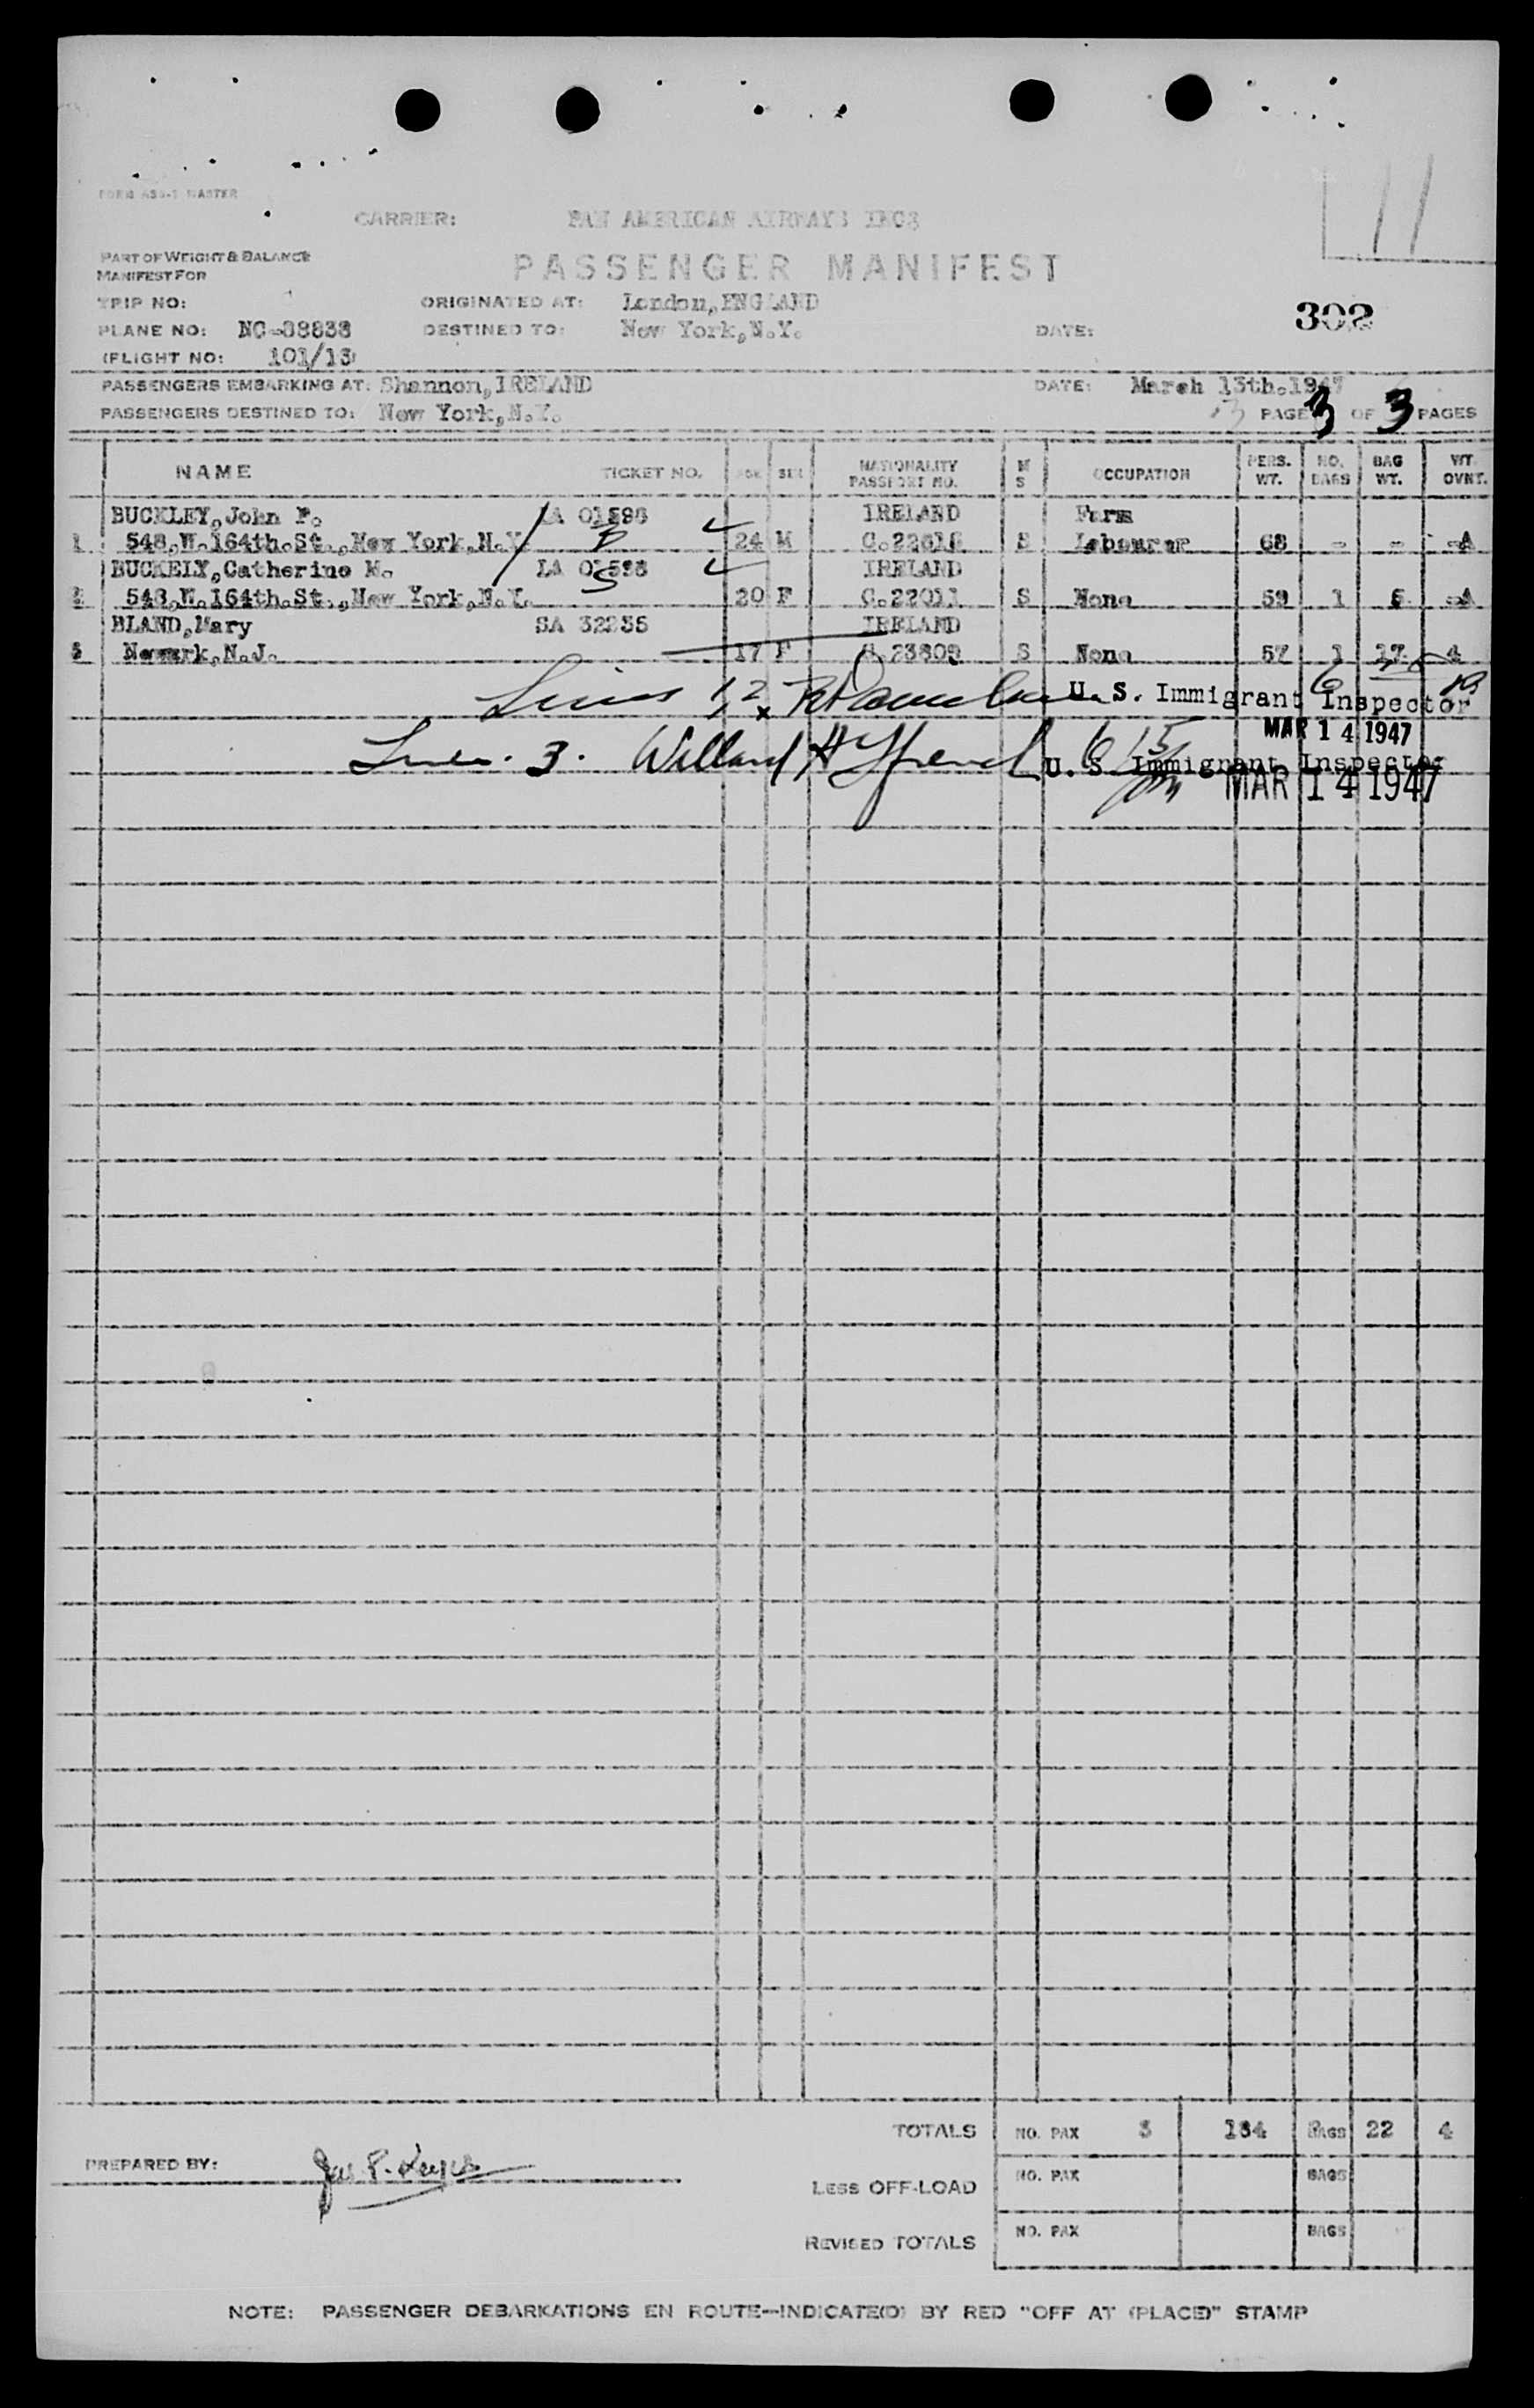 FORM 439-1 MASTER
CARRIER: PAN AMERICAN AIRWAYS INC
PART OF WEIGHT & BALANCE
MANIFEST FOR
PASSENGER MANIFEST
11
TRIP NO:
ORIGINATED AT: London, ENGLAND
302
PLANE NO: NC-88838
DESTINED TO: New York, N.Y.
DATE:
(FLIGHT NO: 101/13
PASSENGERS EMBARKING AT: Shannon, IRELAND
DATE: March 13th. 1947
PASSENGERS DESTINED TO: New York, N.Y.
PAGE 3 OF 3 PAGES
NAME TICKET NO. AGE SEX NATIONALITY PASSPORT NO. M S OCCUPATION PERS. WT. NO. BAGS BAG WT. WT. OVNT.
BUCKLEY, John P. IRELAND Farm
1 548, W. 164th. St., New York, N.Y. 24 M S Labourer 68 - -
BUCKELY, Catherine M. IRELAND
2 548, W. 164th. St., New York, N.Y. S 20 F C.22011 S None 59 1 5
BLAND, Mary SA 32235 IRELAND
3 Newark, N.J. 17 F S None 57 1 17 4
Lines 1, 2 U. S. Immigrant Inspector
MAR 14 1947
Line. 3. Willard H U. S. Immigrant Inspector
MAR 14 1947
TOTALS NO. PAX 3 184 BAGS 22 4
PREPARED BY: Jas. P.
LESS OFF-LOAD NO. PAX BAGS
REVISED TOTALS NO. PAX BAGS
NOTE: PASSENGER DEBARKATIONS EN ROUTE—INDICATE(D) BY RED "OFF AT (PLACE)" STAMP